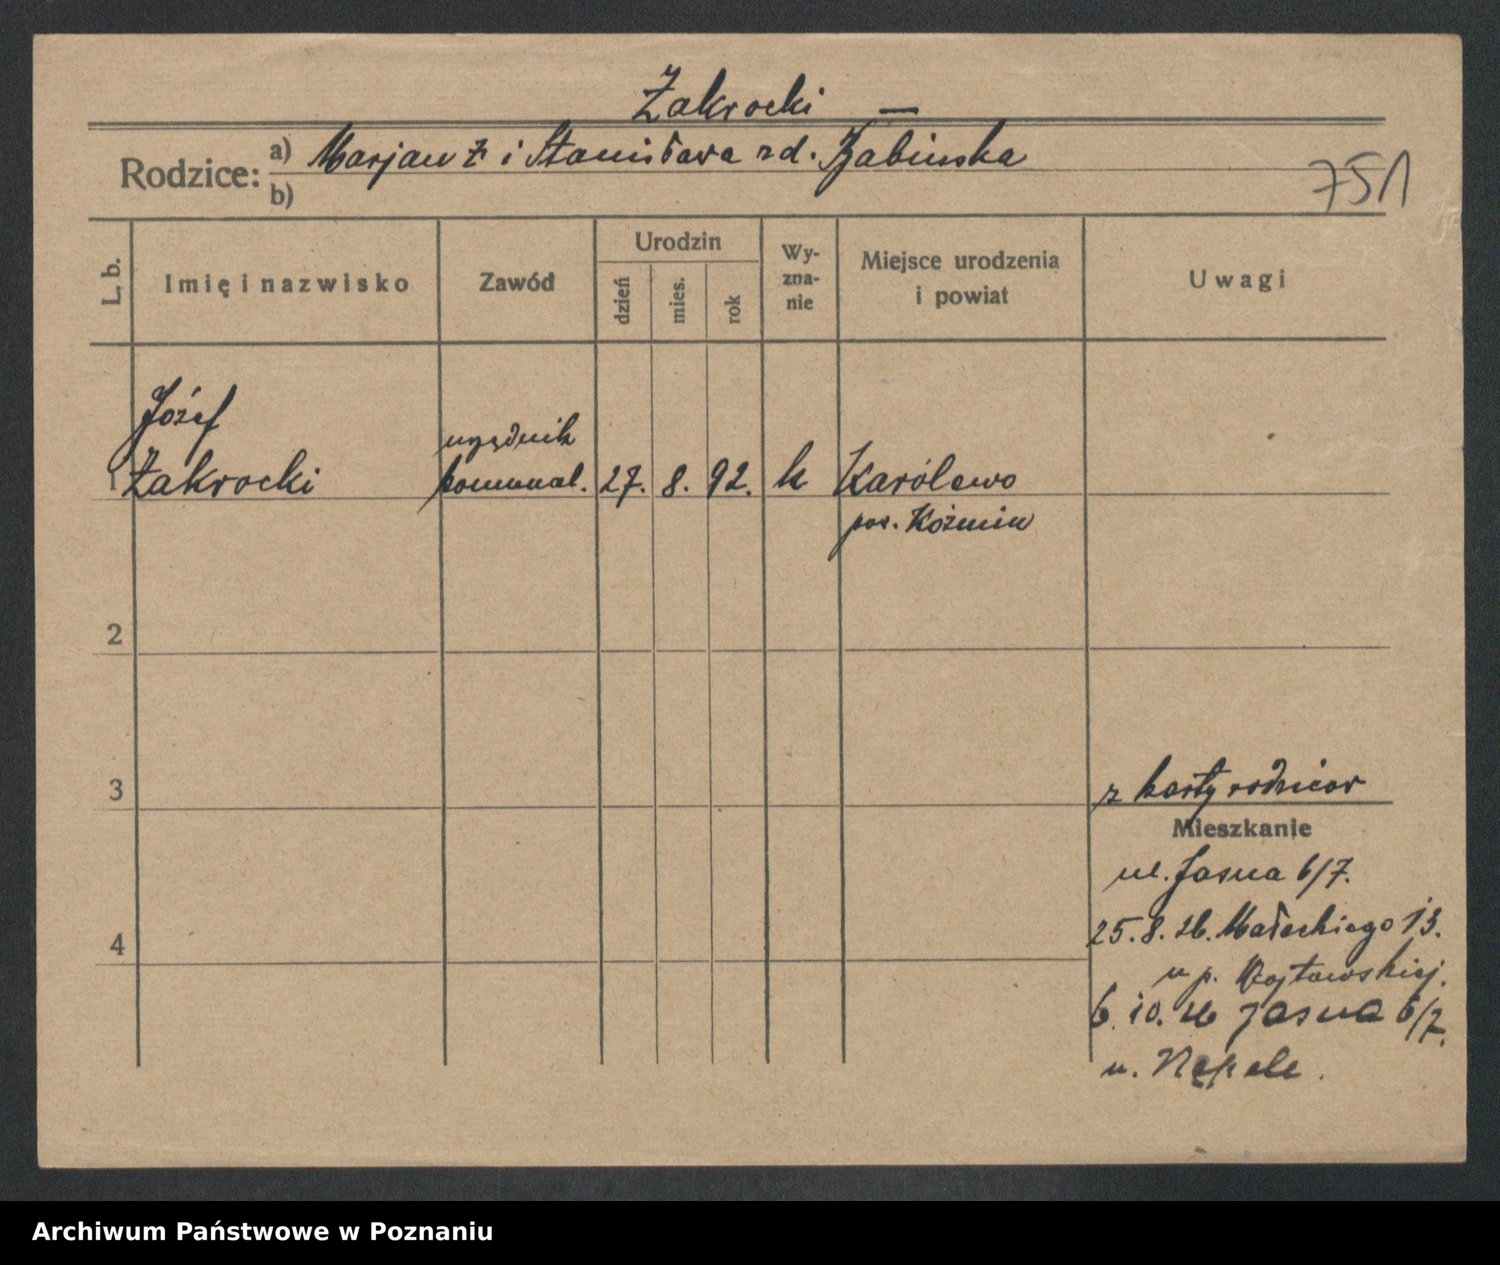 Żakrocki —
Rodzice: a) Marjan Ż i Stanisława zd. Żabinska
b)
751
L. b.
Imię i nazwisko
Zawód
Urodzin
dzień
mies.
rok
Wy-
zna-
nie
Miejsce urodzenia
i powiat
Uwagi
Józef
1 Żakrocki
urzędnik
komunal.
27. 8. 92. k
Karólewo
pow. Koźmin
2
3
z karty rodzicow
Mieszkanie
ul. Jasna 6/7.
4
25. 8. 26. Małeckiego 13.
u p. Wojtowskiej.
6. 10. 26 Jasna 6/7.
u.
Archiwum Państwowe w Poznaniu